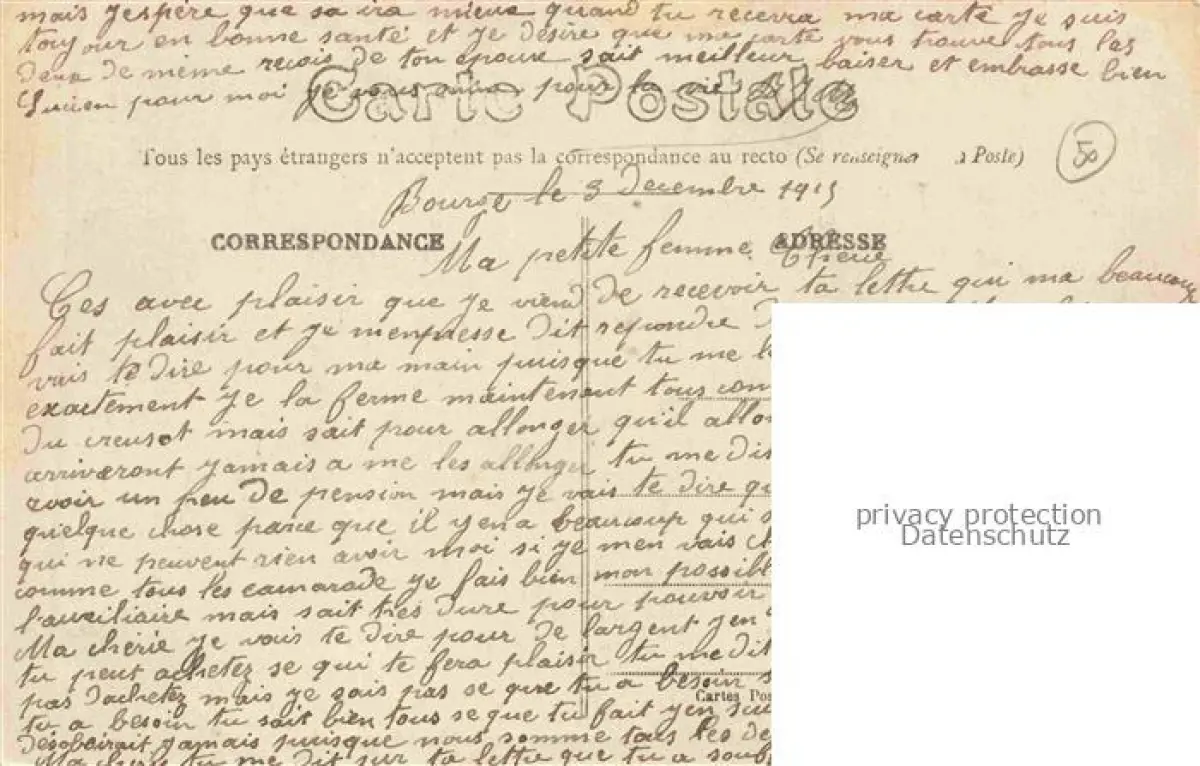 mais jespére que sa ira mieux quand tu recevra ma carte je suis
toujour en bonne santé et je désire que ma carte vous trouve tous les
deux de même recois de ton époux sait meilleur baiser et embrasse bien
Lucien pour moi je vous aime pour la vie
Carte Postale
Tous les pays étrangers n'acceptent pas la correspondance au recto (Se renseigner à la Poste)
50
Bourge le 3 decembre 1915
CORRESPONDANCE
ADRESSE
Ma petite femme Cherie
Ces avec plaisir que je viend de recevoir ta lettre qui ma beaucoup
fait plaisir et je menpresse dit repondre
vais te dire pour ma main puisque tu me
exactement je la ferme maintenant tous
du creusot mais sait pour allonger qu'il
arriveront jamais a me les allonger tu me dis
avoir un peu de pension mais je vais te dire
quelque chose parce que il yen a beaucoup qui
qui ne peuvent rien avoir moi si je men vais
comme tous les camarade je fais bien mon possibl
l'auxiliaire mais sait trés dure pour pouvoir
Ma chérie je vais te dire pour de largent yen
tu peut achetez se qui te fera plaisir tu me dit
pas d'achetez mais je sais pas se que tu a besoin
Cartes Pos
tu a besoin tu sait bien tous se que tu fait yen sui
désobeirait jamais puisque nous somme tous les de
Ma cherie tu me dit sur ta lettre que tu a souf
privacy protection
Datenschutz